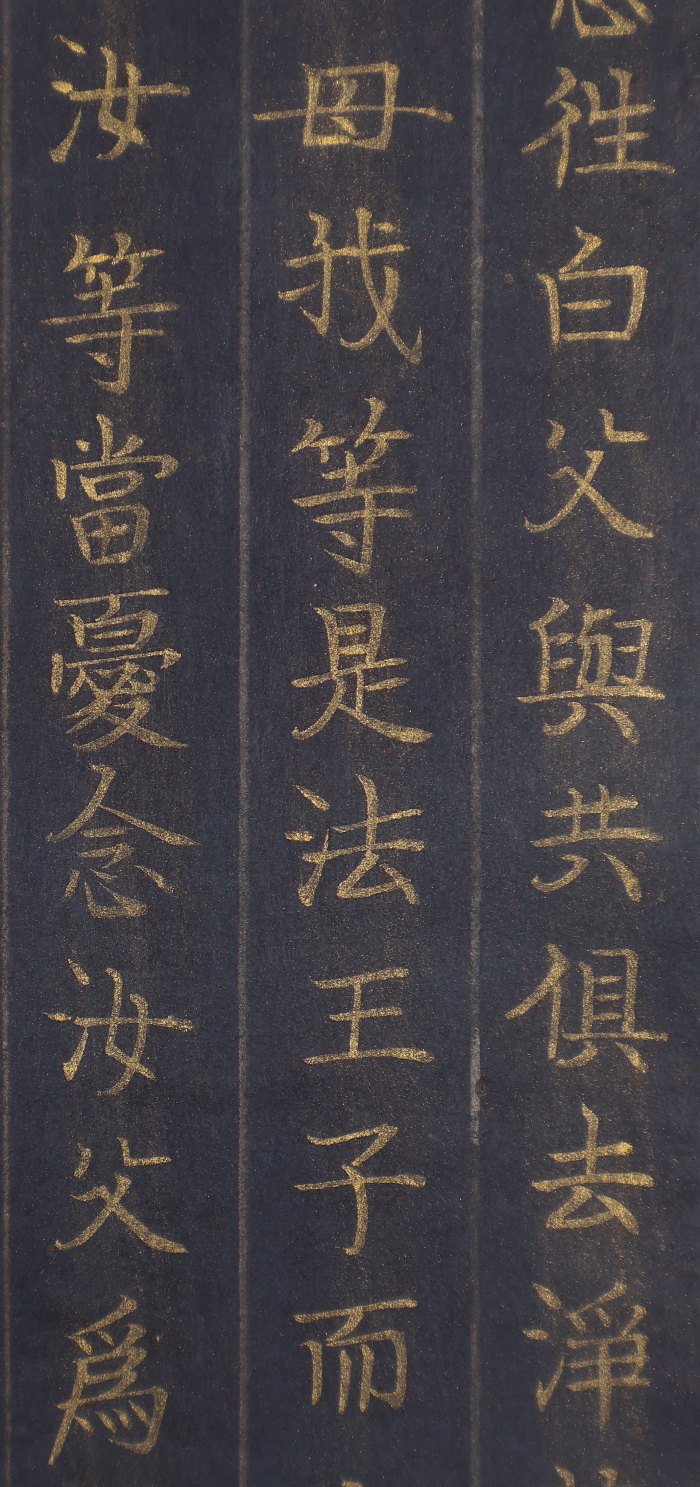 往白父與共俱去淨
母我等是法王子而
汝等當憂念汝父爲